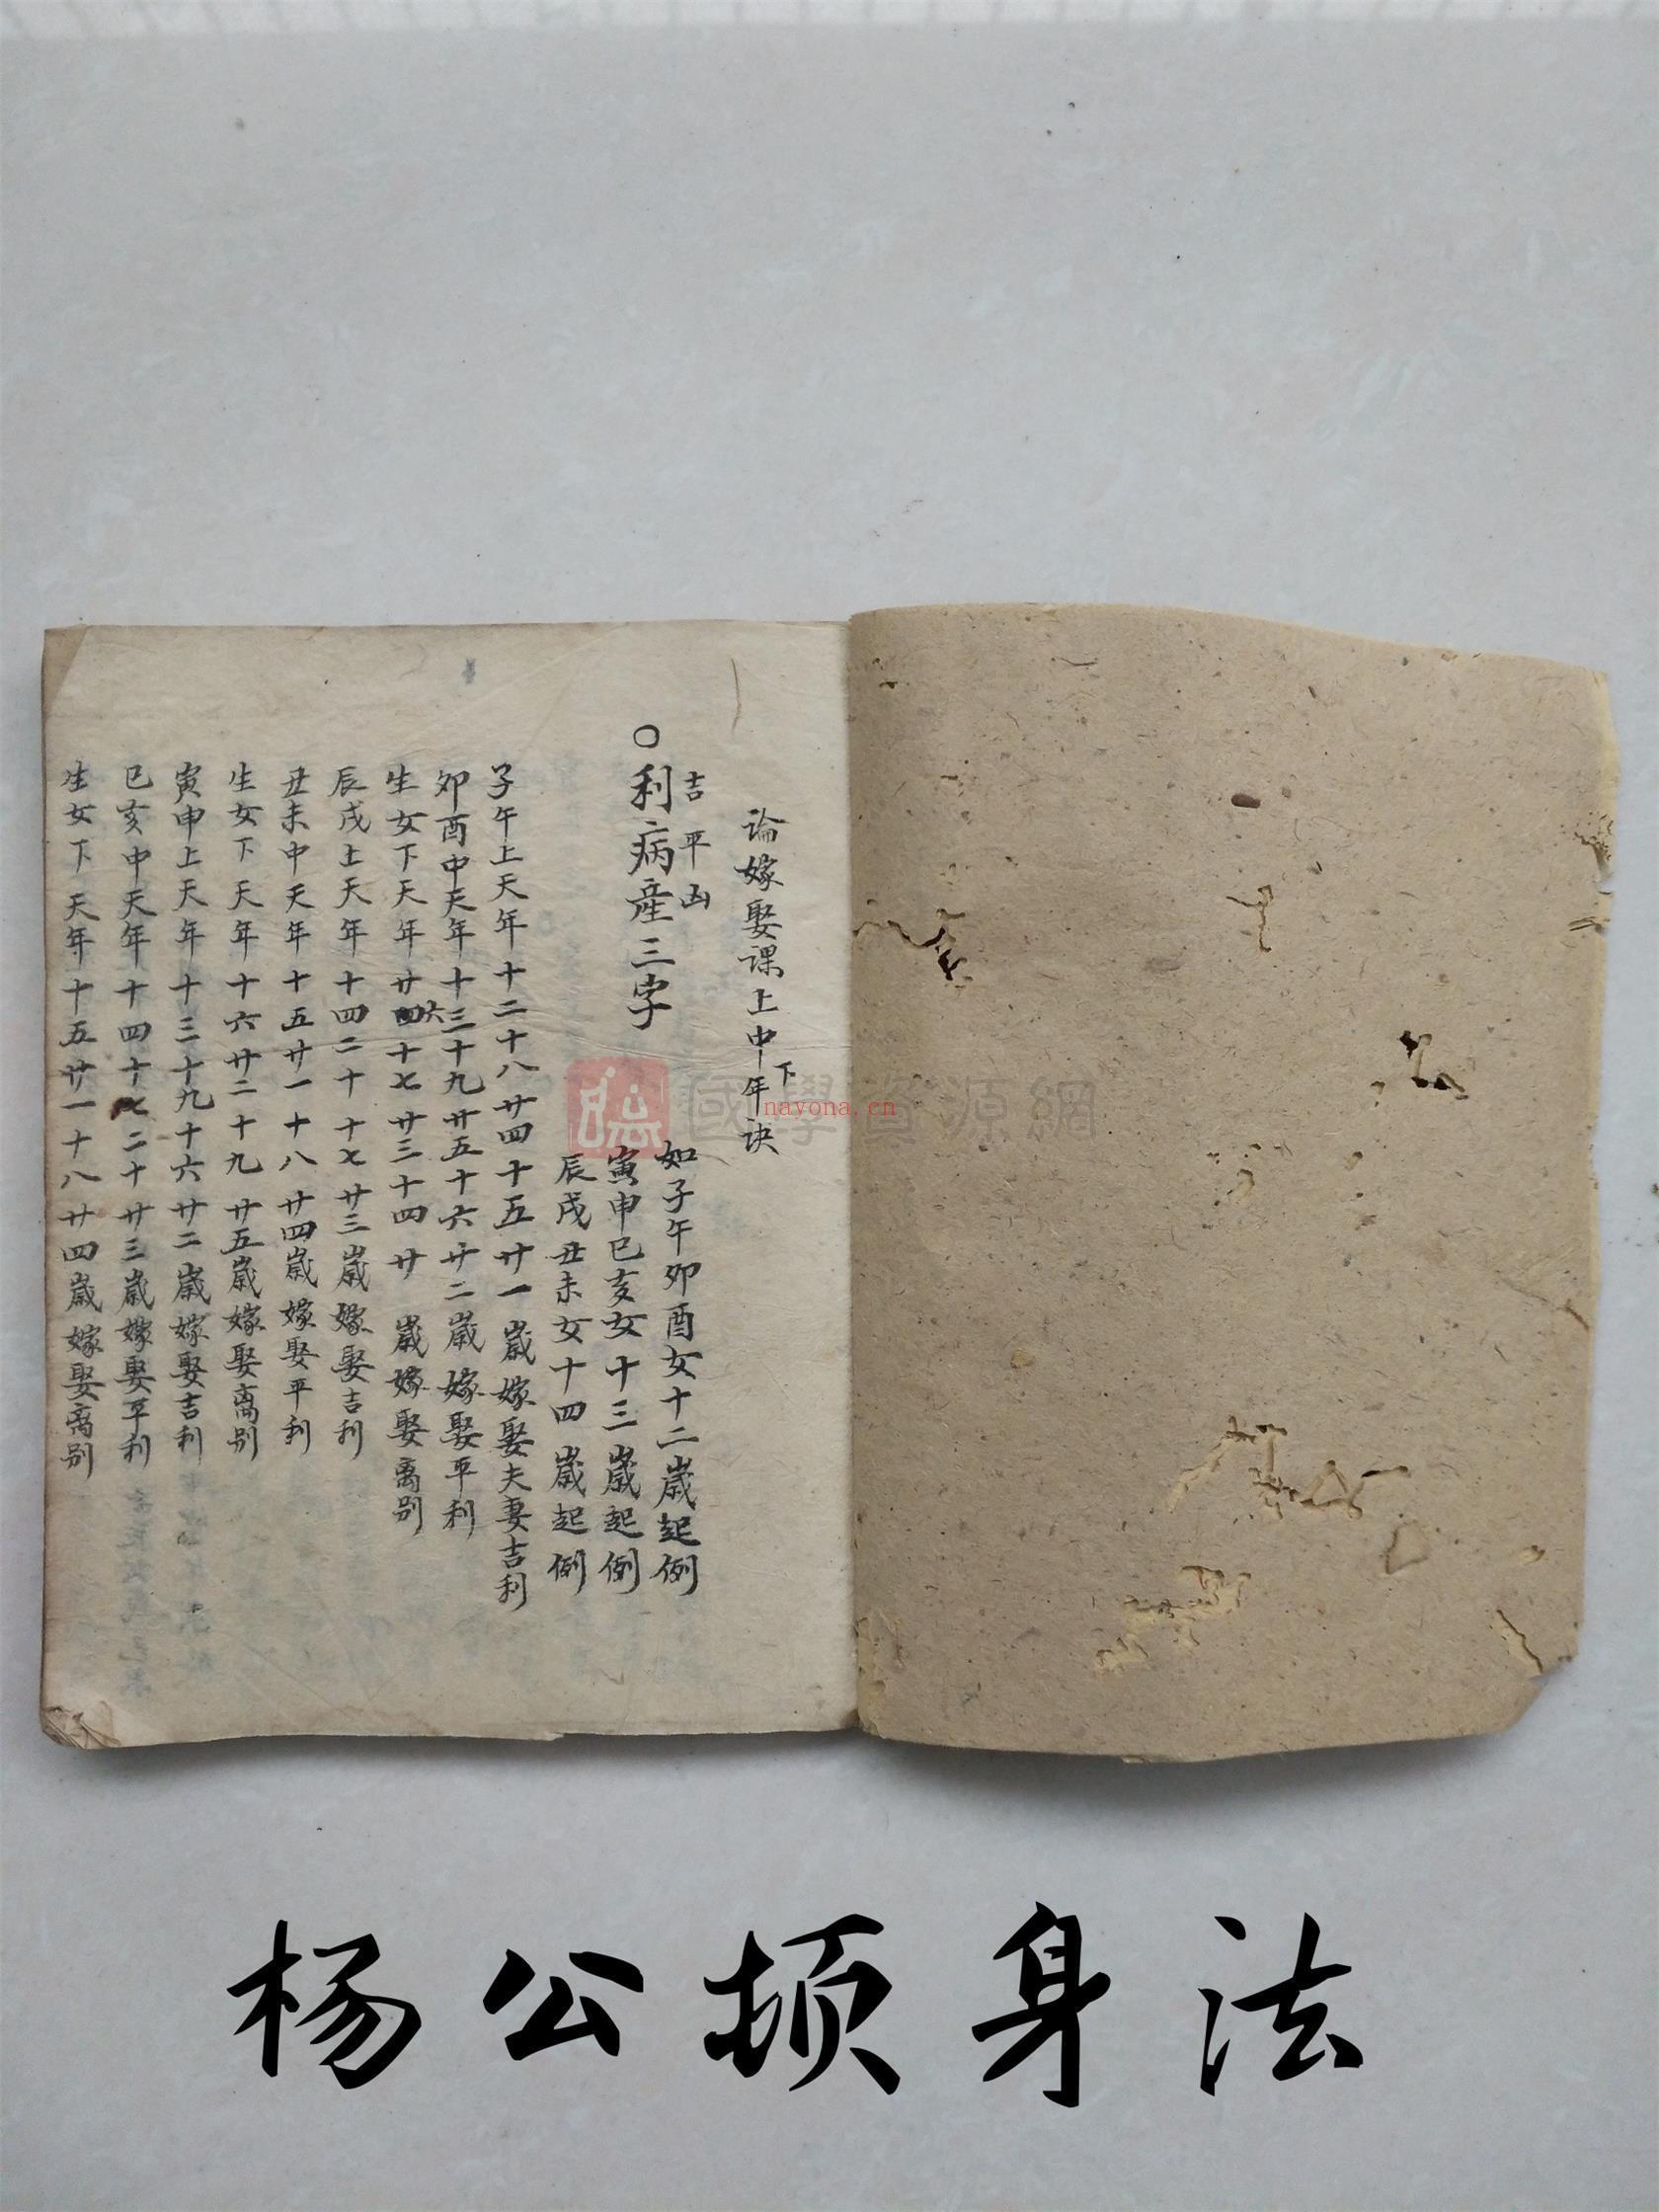 论嫁娶课上中下年诀
吉平凶
○利病產三字
如子午卯酉女十二歲起例
寅申巳亥女十三歲起例
辰戌丑未女十四歲起例
子午上天年十二十八廿四十五廿一歲嫁娶夫妻吉利
卯酉中天年十三十九廿五十六廿二歲嫁娶平利
生女下天年廿六十七廿三十四廿歲嫁娶离别
辰戌上天年十四二十十七廿三歲嫁娶吉利
丑未中天年十五廿一十八廿四歲嫁娶平利
生女下天年十六廿二十九廿五歲嫁娶离别
寅申上天年十三十九十六廿二歲嫁娶吉利
巳亥中天年十四十七二十廿三歲嫁娶平利
生女下天年十五廿一十八廿四歲嫁娶离别
國學資源網
nayona.cn
杨公顿身法